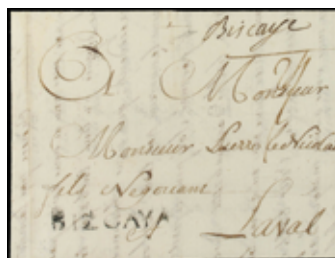 Biscaye
A Monsieur
Monsieur Pierre le Nicolas
fils Negociant
BIZCAYA
Laval